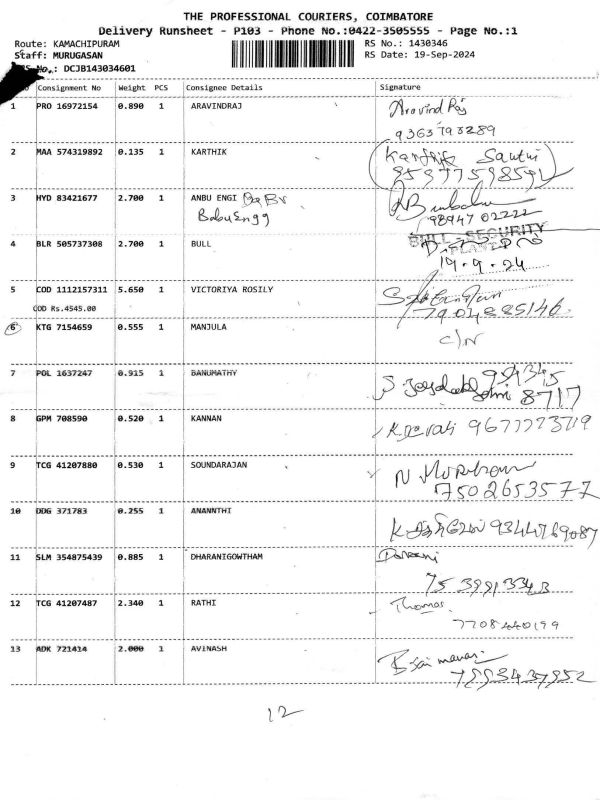 THE PROFESSIONAL COURIERS, COIMBATORE
Delivery Runsheet - P103 - Phone No.:0422-3505555 - Page No.:1
Route: KAMACHIPURAM RS No.: 1430346
Staff: MURUGASAN RS Date: 19-Sep-2024
No.: DCJB143034601
Consignment No Weight PCS Consignee Details Signature
1 PRO 16972154 0.890 1 ARAVINDRAJ Aravind Raj
9363798289
2 MAA 574319892 0.135 1 KARTHIK Karthik
9597759859
3 HYD 83421677 2.700 1 ANBU ENGI BaBu
Babu Engg
98947 02222
4 BLR 505737308 2.700 1 BULL BULL SECURITY
19.9.24
5 COD 1112157311 5.650 1 VICTORIYA ROSILY
COD Rs.4545.00 7904885146
6 KTG 7154659 0.555 1 MANJULA C/N
7 POL 1637247 0.915 1 BANUMATHY
8717
8 GPM 708590 0.520 1 KANNAN 9677773719
9 TCG 41207880 0.530 1 SOUNDARAJAN
7502653577
10 DDG 371783 0.255 1 ANANNTHI 9344769087
11 SLM 354875439 0.885 1 DHARANIGOWTHAM
12 TCG 41207487 2.340 1 RATHI Thomas
7708440199
13 ADK 721414 2.000 1 AVINASH
12